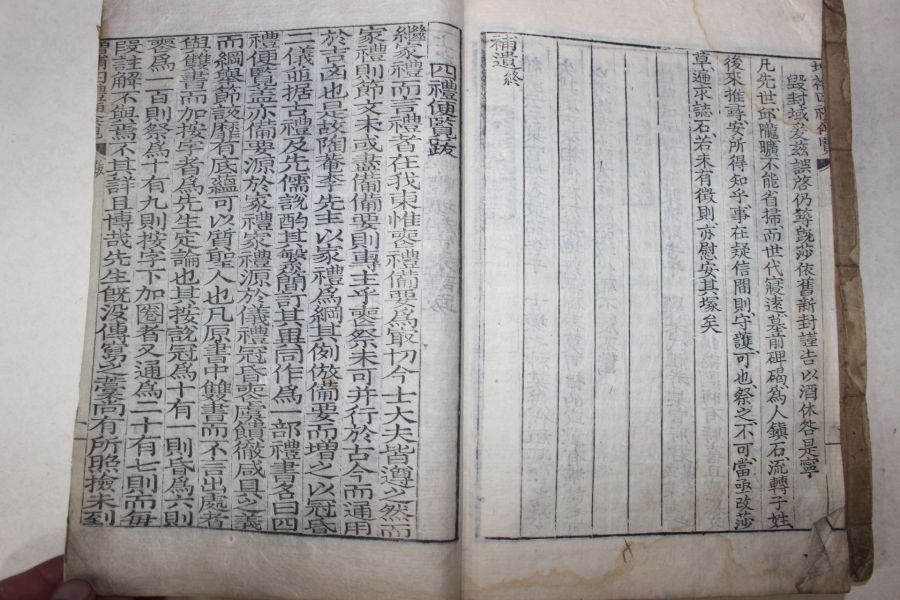 毀封域爰玆誤啓仍等旣莎依舊新封謹告以酒休咎是寧
凡先世邱隴曠不能省掃而世代寢遠墓前碑碣爲人鎭石流轉子姓
後來推尋安所得知乎事在疑信間則守護可也祭之不可當亟改莎
草遍求誌石若未有徵則亦慰安其塚矣
補遺終
四禮便覽跋
繼家禮而言禮者在我東惟喪禮備要爲最切今士大夫皆遵之然而
家禮則節文未或盡備備要則專主乎喪祭未可幷行於古今而通用
於吉凶也是故陶菴李先生以家禮爲綱其例倣備要而增之以冠昏
二儀並据古禮及先儒說酌其繁簡訂其異同作爲一部禮書名曰四
禮便覽蓋亦備要源於家禮家禮源於儀禮冠昏喪虞饋徹咸具之義
而綱與節該靡有底蘊可以質聖人也凡原書中雙書而不言出處者
與雙書而加按字者爲先生定論也其按說冠爲十有一則昏爲六則
喪爲一百則祭爲十有九則按字下加圈者又通爲一十有七則而每
段註解不與焉不其詳且博哉先生旣沒傳寫之藁尙有所照撿未到